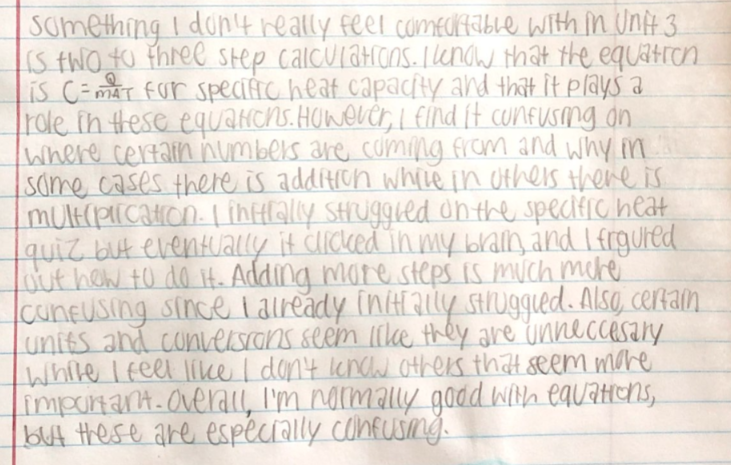 something I don't really feel comfortable with in Unit 3
is two to three step calculations. I know that the equation
is C = Q/mΔT for specific heat capacity and that it plays a
role in these equations. However, I find it confusing on
where certain numbers are coming from and why in
some cases there is addition while in others there is
multiplication. I initially struggled on the specific heat
quiz but eventually it clicked in my brain, and I figured
out how to do it. Adding more steps is much more
confusing since I already initially struggled. Also, certain
units and conversions seem like they are unneccesary
while I feel like I don't know others that seem more
important. Overall, I'm normally good with equations,
but these are especially confusing.